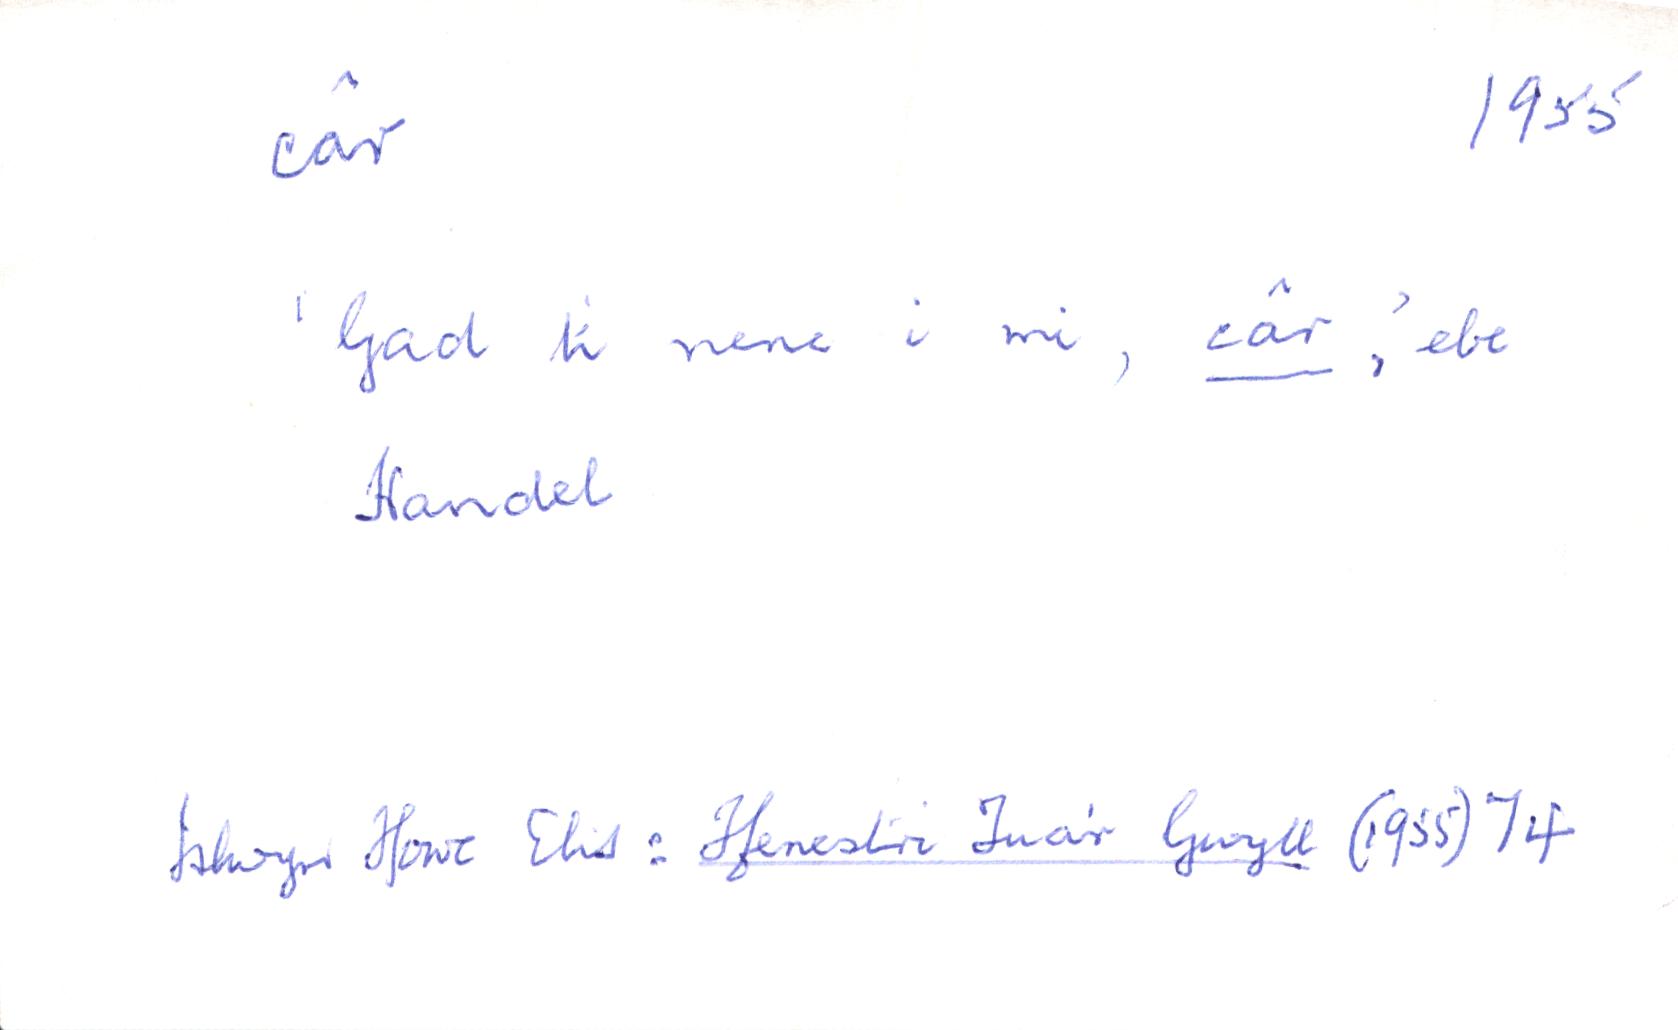 câr 1955
'Gad ti nene i mi, câr,' ebe
Handel
Islwyn Ffowc Elis: Ffenestri Tua'r Gwyll (1955) 74